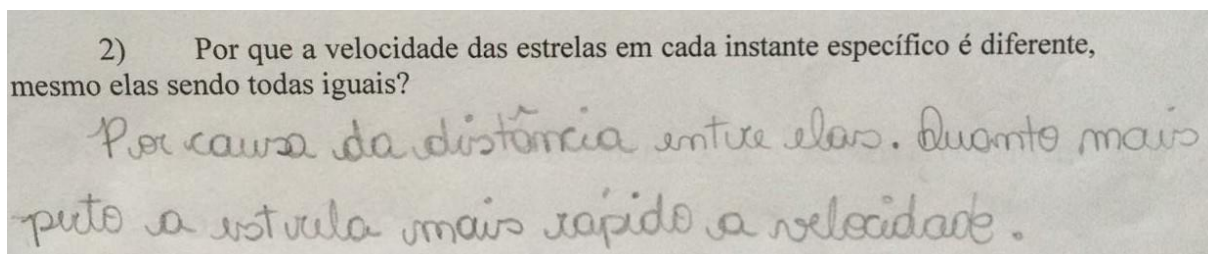 2) Por que a velocidade das estrelas em cada instante específico é diferente,
mesmo elas sendo todas iguais?
Por causa da distância entre elas. Quanto mais
perto a estrela mais rápido a velocidade.